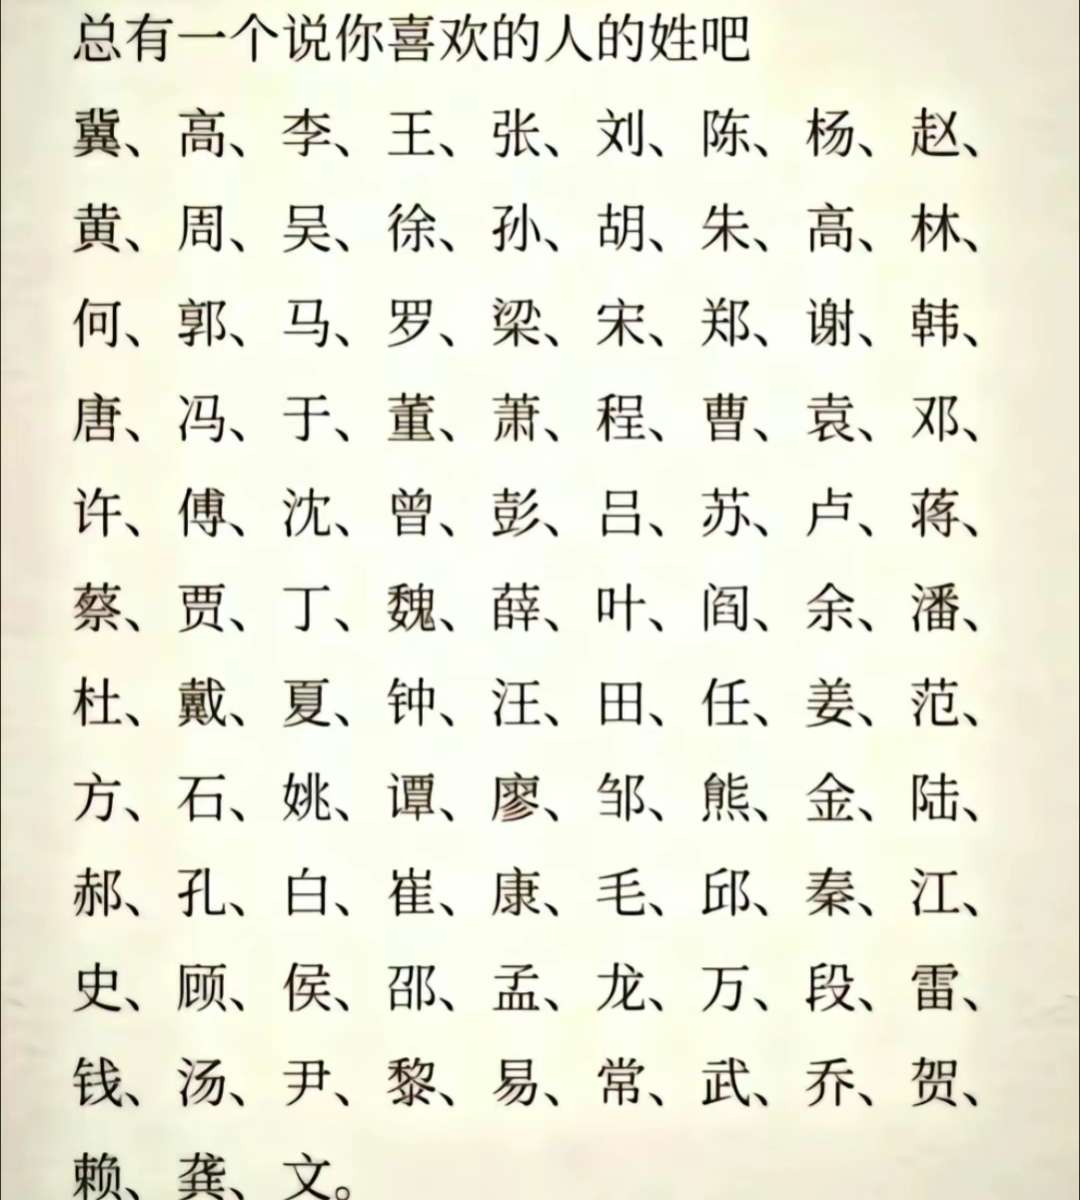 总有一个说你喜欢的人的姓吧
冀、高、李、王、张、刘、陈、杨、赵、
黄、周、吴、徐、孙、胡、朱、高、林、
何、郭、马、罗、梁、宋、郑、谢、韩、
唐、冯、于、董、萧、程、曹、袁、邓、
许、傅、沈、曾、彭、吕、苏、卢、蒋、
蔡、贾、丁、魏、薛、叶、阎、余、潘、
杜、戴、夏、钟、汪、田、任、姜、范、
方、石、姚、谭、廖、邹、熊、金、陆、
郝、孔、白、崔、康、毛、邱、秦、江、
史、顾、侯、邵、孟、龙、万、段、雷、
钱、汤、尹、黎、易、常、武、乔、贺、
赖、龚、文。